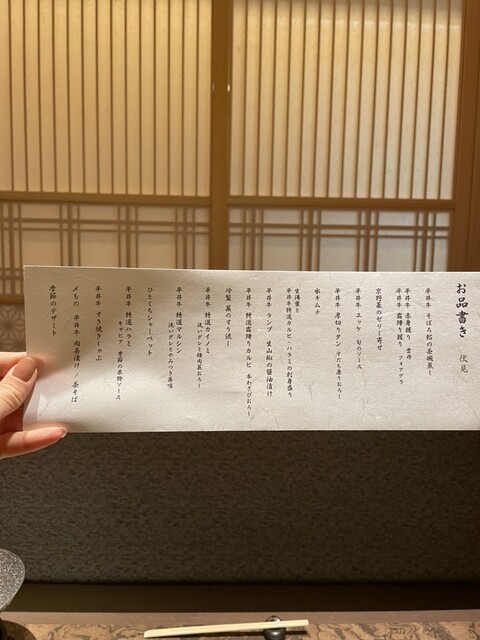 お品書き 伏見
平井牛 そぼろ餡の茶碗蒸し
平井牛 赤身握り 雲丹
平井牛 霜降り握り フォアグラ
京野菜のゼリー寄せ
平井牛 ユッケ 旬のソース
平井牛 厚切りタン すだち薫りおろし
水キムチ
生湯葉と
平井牛 特選カルビ・ハラミの刺身盛り
平井牛 ランプ 生山椒の醤油漬け
平井牛 特選霜降りカルビ 本わさびおろし
冷製 蕪のすり流し
平井牛 特選カイノミ
洗いダレと梅肉蕪おろし
平井牛 特選マルシン
洗いダレとやみつき薬味
ひとくちシャーベット
平井牛 特選ハラミ
キャビア 季節の果物ソース
平井牛 すき焼きしゃぶ
〆もの 平井牛 肉茶漬け / 茶そば
季節のデザート